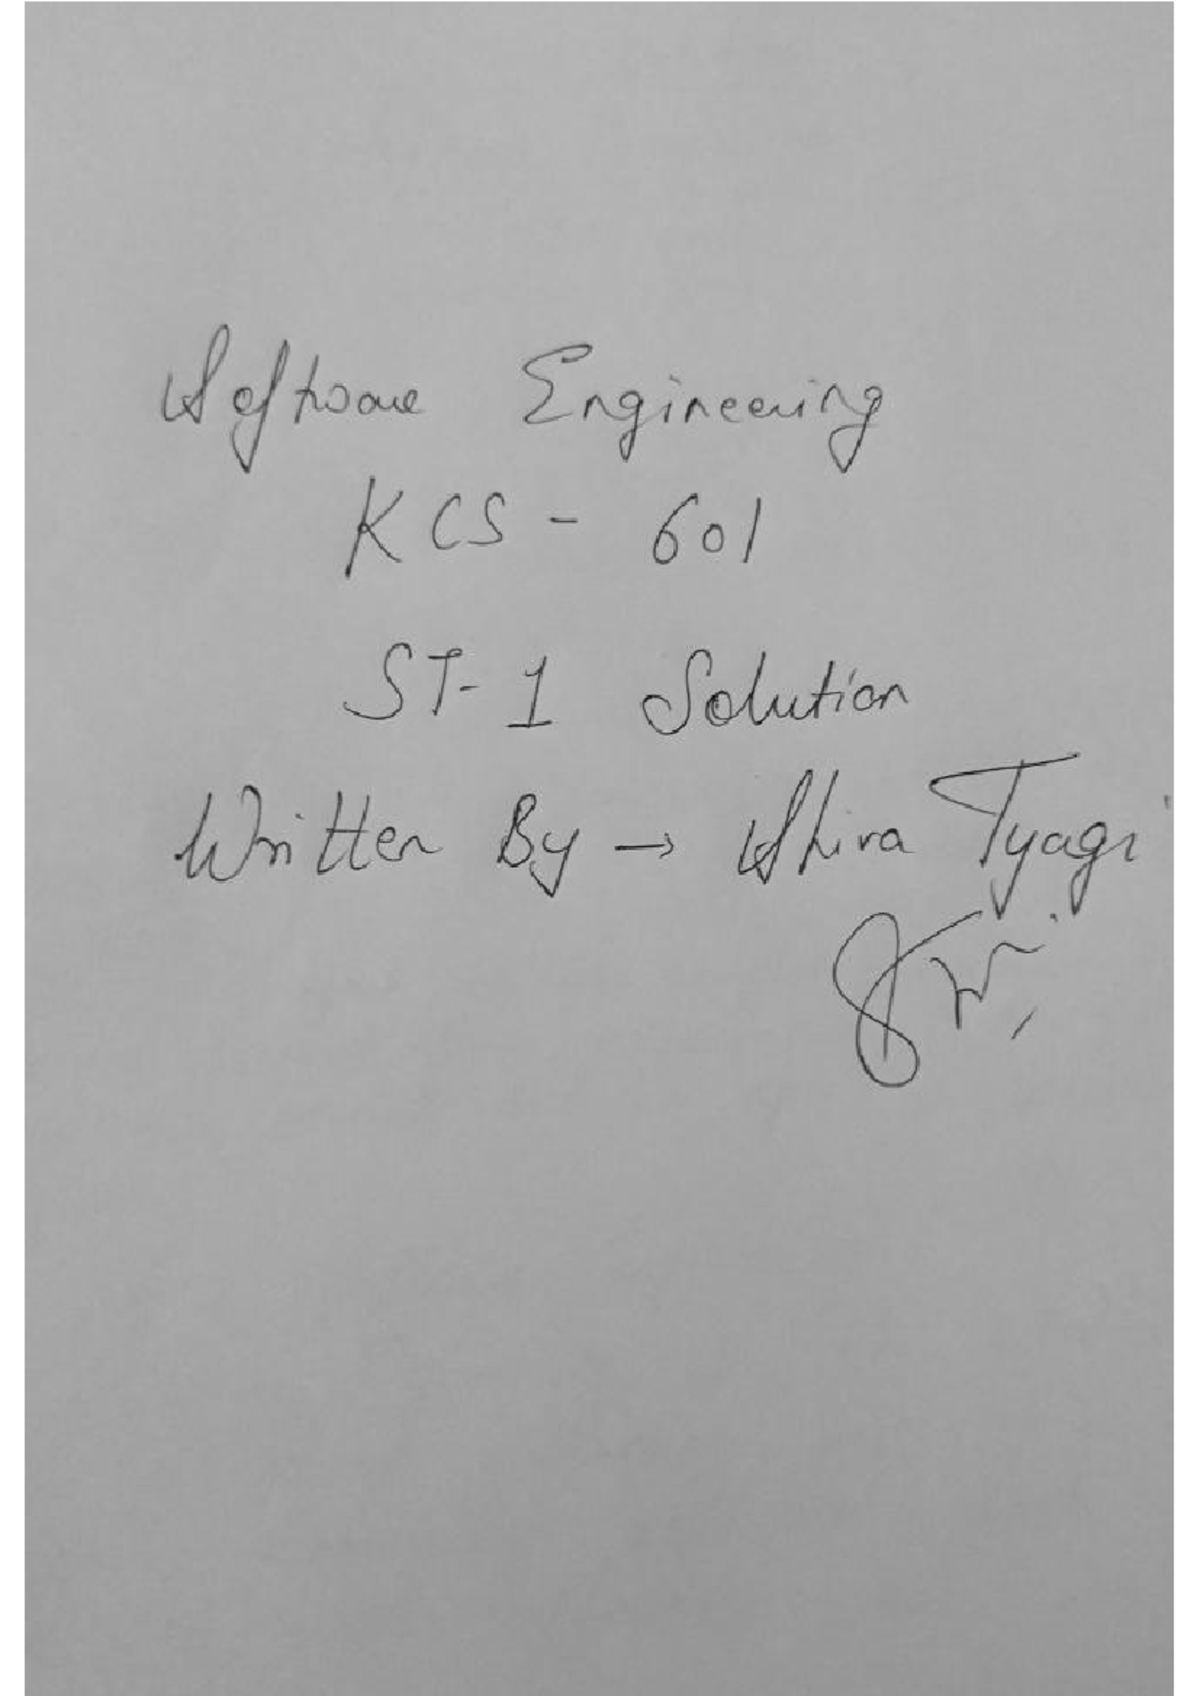 Software Engineering
KCS - 601
ST-1 Solution
Written By → Shiva Tyagi